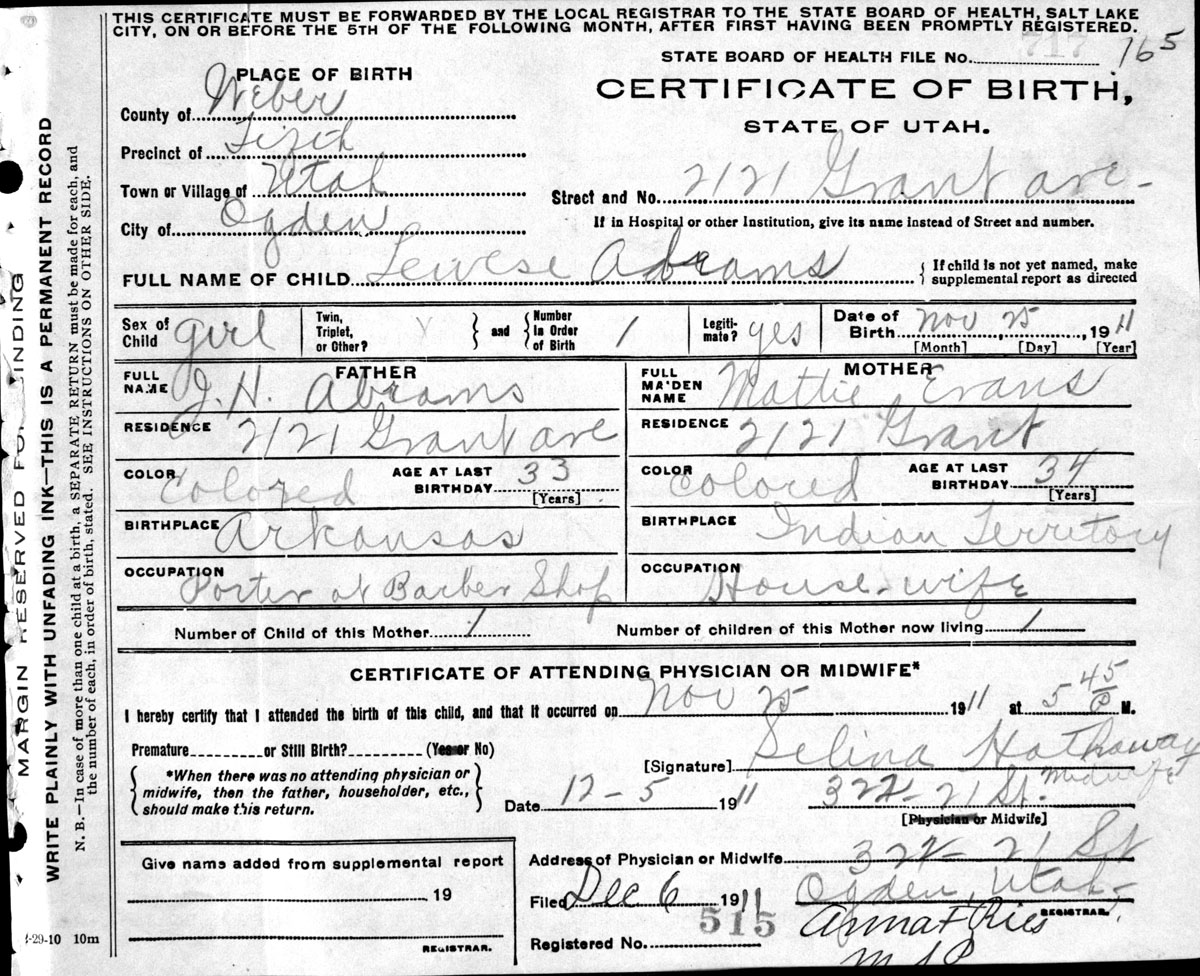 THIS CERTIFICATE MUST BE FORWARDED BY THE LOCAL REGISTRAR TO THE STATE BOARD OF HEALTH, SALT LAKE
CITY, ON OR BEFORE THE 5TH OF THE FOLLOWING MONTH, AFTER FIRST HAVING BEEN PROMPTLY REGISTERED.
STATE BOARD OF HEALTH FILE No. 717 165
PLACE OF BIRTH
CERTIFICATE OF BIRTH,
STATE OF UTAH.
County of Weber
Precinct of
Town or Village of Utah
Street and No. 2121 Grant ave-
City of Ogden
If in Hospital or other Institution, give its name instead of Street and number.
FULL NAME OF CHILD Lewese Abrams
{ If child is not yet named, make
supplemental report as directed
Sex of Child girl
Twin, Triplet, or Other? } and { Number In Order of Birth 1
Legiti-mate? yes
Date of Birth Nov 25, 1911
[Month] [Day] [Year]
FATHER
FULL NAME J. H. Abrams
RESIDENCE 2121 Grant ave
COLOR Colored AGE AT LAST BIRTHDAY 33
[Years]
BIRTHPLACE Arkansas
OCCUPATION Porter at Barber Shop
MOTHER
FULL MAIDEN NAME Mattie Evans
RESIDENCE 2121 Grant
COLOR Colored AGE AT LAST BIRTHDAY 34
[Years]
BIRTHPLACE Indian Territory
OCCUPATION House-wife
Number of Child of this Mother 1 Number of children of this Mother now living 1
CERTIFICATE OF ATTENDING PHYSICIAN OR MIDWIFE*
I hereby certify that I attended the birth of this child, and that it occurred on Nov 25 1911 at 5 45 P M.
Premature or Still Birth? (Yes or No)
{ *When there was no attending physician or
midwife, then the father, householder, etc.,
should make this return. }
[Signature] Selina Hathaway
Midwife
Date 12-5 1911 322- 21 St.
[Physician or Midwife]
Give name added from supplemental report
19
REGISTRAR.
Address of Physician or Midwife 322- 21 St
Ogden, Utah-
Filed Dec 6 1911
Anna F Ries
REGISTRAR.
Registered No. 515
MARGIN RESERVED FOR BINDING
WRITE PLAINLY WITH UNFADING INK—THIS IS A PERMANENT RECORD
N. B.—In case of more than one child at a birth, a SEPARATE RETURN must be made for each, and
the number of each, in order of birth, stated. SEE INSTRUCTIONS ON OTHER SIDE.
-29-10 10m